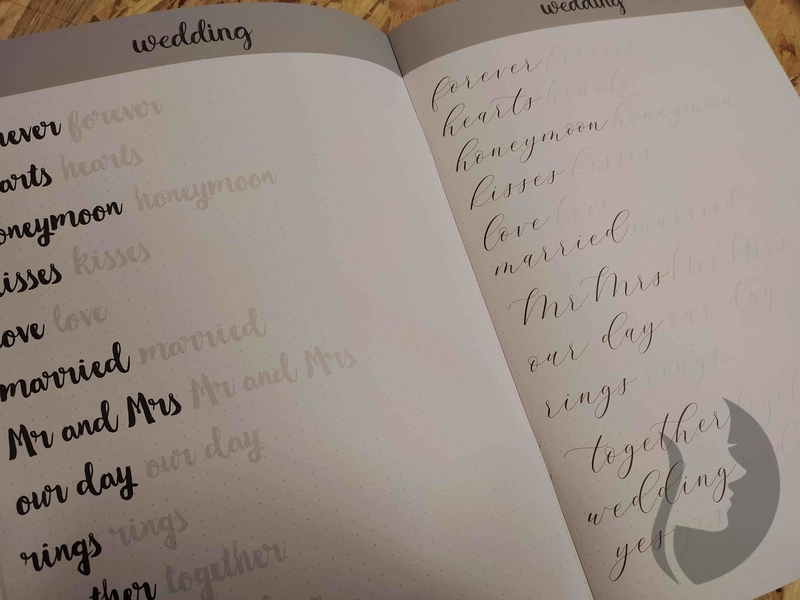 wedding
forever
hearts hearts
honeymoon honeymoon
kisses kisses
love love
married married
Mr and Mrs Mr and Mrs
our day our day
rings rings
together
wedding
forever forever
hearts hearts
honeymoon honeymoon
kisses kisses
love love
married married
Mr Mrs Mr Mrs
our day our day
rings rings
together
wedding
yes